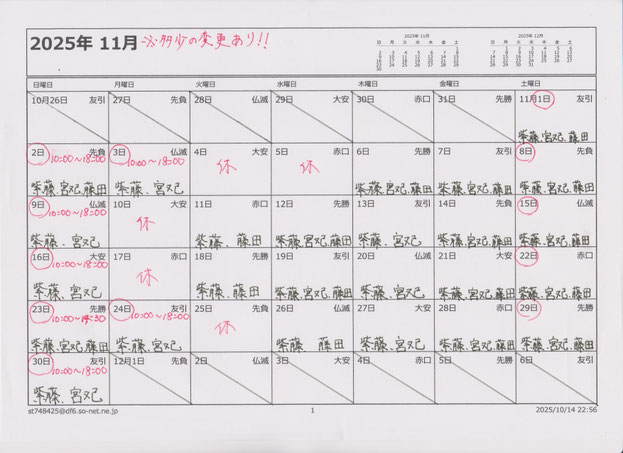 2025年 11月 ※多少の変更あり!!
2025年 11月 2025年 12月
日 月 火 水 木 金 土 日 月 火 水 木 金 土
日曜日 月曜日 火曜日 水曜日 木曜日 金曜日 土曜日
10月26日 友引 27日 先負 28日 仏滅 29日 大安 30日 赤口 31日 先勝 11月1日 友引
紫藤、宮又己、藤田
2日 先負 3日 仏滅 4日 大安 5日 赤口 6日 先勝 7日 友引 8日 先負
10:00~18:00 10:00~18:00 休 休
紫藤、宮又己、藤田 紫藤、宮又己 紫藤、宮又己、藤田 紫藤、宮又己 紫藤、宮又己、藤田
9日 仏滅 10日 大安 11日 赤口 12日 先勝 13日 友引 14日 先負 15日 仏滅
10:00~18:00 休
紫藤、宮又己 紫藤、藤田 紫藤、宮又己、藤田 紫藤、宮又己 紫藤、宮又己 紫藤、宮又己、藤田
16日 大安 17日 赤口 18日 先勝 19日 友引 20日 仏滅 21日 大安 22日 赤口
10:00~18:00 休
紫藤、宮又己 紫藤、藤田 紫藤、宮又己、藤田 紫藤、宮又己 紫藤、宮又己 紫藤、宮又己、藤田
23日 先勝 24日 友引 25日 先負 26日 仏滅 27日 大安 28日 赤口 29日 先勝
10:00~ 10:00~18:00 休
紫藤、宮又己、藤田 紫藤、宮又己 紫藤 藤田 紫藤、宮又己 紫藤、宮又己 紫藤、宮又己、藤田
30日 友引 12月1日 先負 2日 仏滅 3日 大安 4日 赤口 5日 先勝 6日 友引
10:00~18:00
紫藤、宮又己
st748425@df6.so-net.ne.jp 1 2025/10/14 22:56